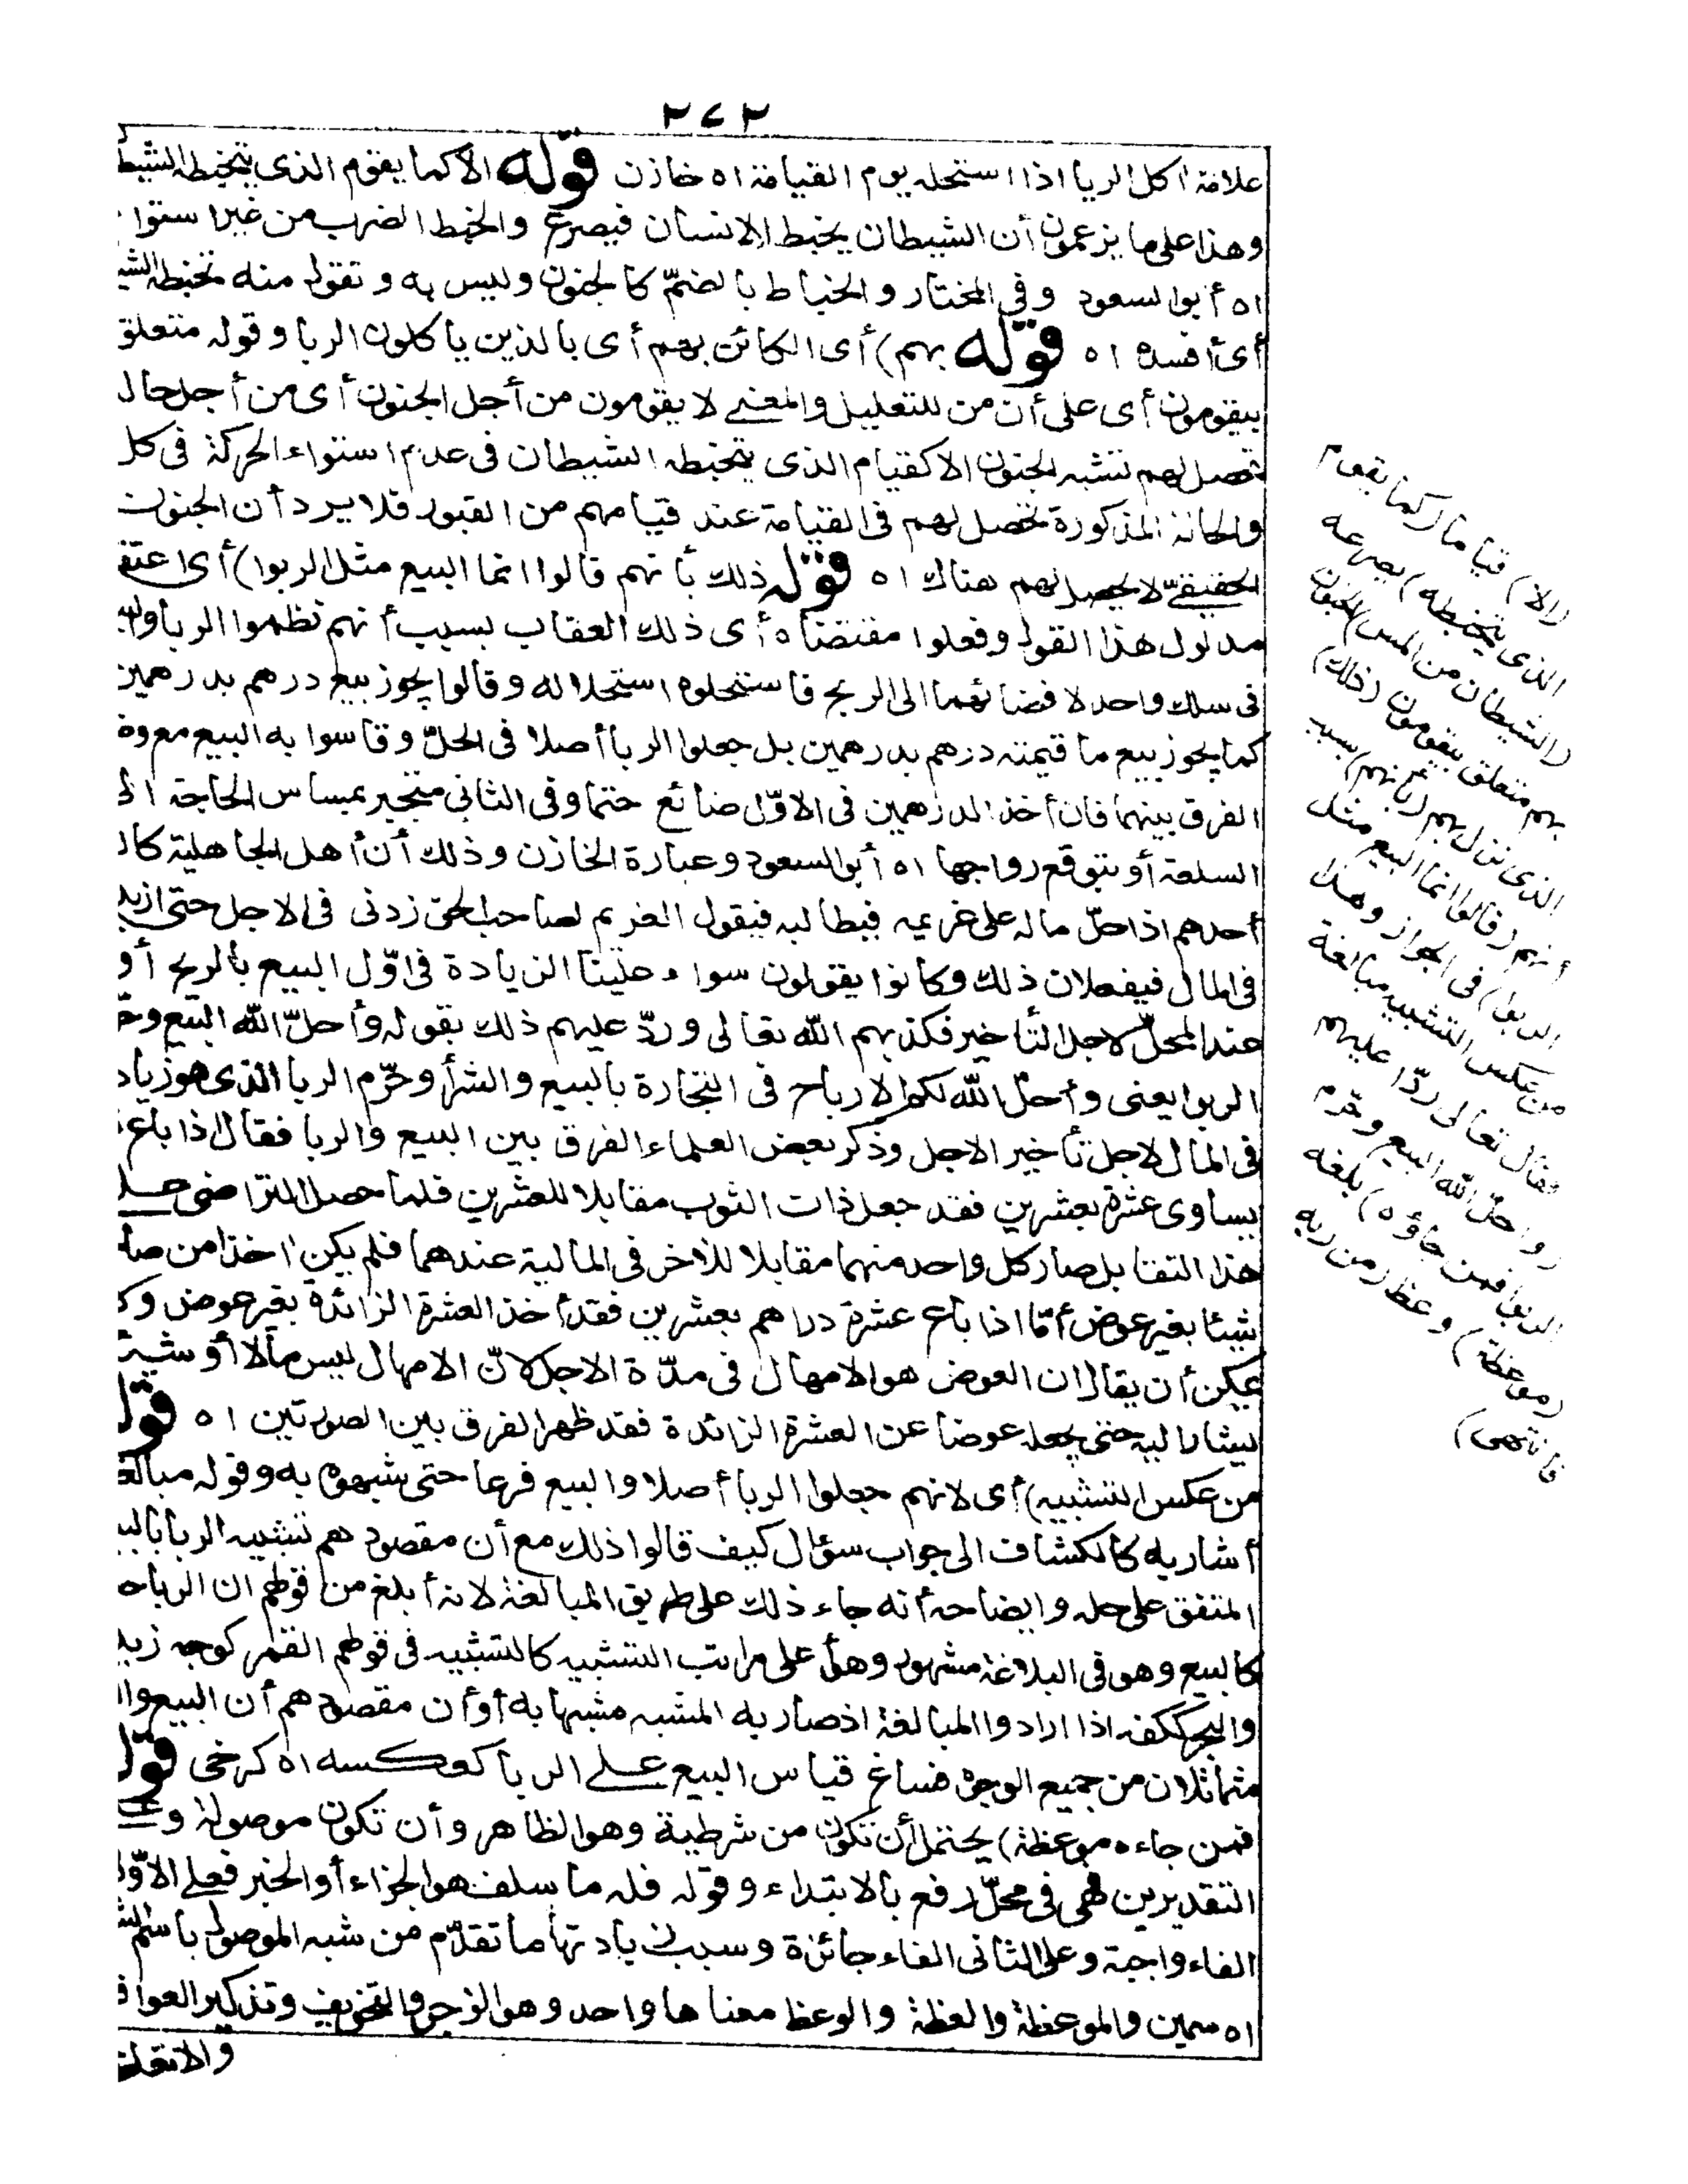 ٢٧٢
علامة أكل الربا اذا استحله يوم القيامة اه خازن قوله الا كما يقوم الذى يتخبطه الشيط
وهذا على ما يزعمون أن الشيطان يخبط الانسان فيصرع والخبط الضرب من غير استوا
اه أبو السعود وفى المختار والخباط بالضمّ كالجنون وليس به وتقول منه تخبطه الشي
أى أفسده اه قوله بهم) أى الكائن بهم أى بالذين يأكلون الربا وقوله متعلق
بيقومون أى على أن من للتعليل والمعنى لا يقومون من أجل الجنون أى من أجل حال
تحصل لهم تشبه الجنون الا كقيام الذى يتخبطه الشيطان فى عدم استواء الحركة فى كل
والحالة المذكورة تحصل لهم فى القيامة عند قيامهم من القبور فلا يرد أن الجنون
الحقيقىّ لا يحصل لهم هناك اه قوله ذلك بأنهم قالوا انما البيع مثل الربوا) أى اعتق
مدلول هذا القول وفعلوا مقتضاه أى ذلك العقاب بسبب أنهم نظموا الربا وال
فى سلك واحد لافضائهما الى الربح فاستحلوه استحلاله وقالوا يجوز بيع درهم بدرهمين
كما يجوز بيع ما قيمته درهم بدرهمين بل جعلوا الربا أصلا فى الحلّ وقاسوا به البيع مع وه
الفرق بينهما فان أخذ الدرهمين فى الاوّل ضائع حتما وفى الثانى منجبر بمساس الحاجة الى
السلعة أو بتوقع رواجها اه أبو السعود وعبارة الخازن وذلك أن أهل الجاهلية كان
أحدهم اذا حلّ ماله على غريمه فيطالبه فيقول الغريم لصاحب الحق زدنى فى الاجل حتى ازيد
فى المال فيفعلان ذلك وكانوا يقولون سواء علينا الزيادة فى اوّل البيع بالربح أو
عند المحلّ لاجل التأخير فكذبهم الله تعالى وردّ عليهم ذلك بقوله وأحلّ الله البيع وحّ
الربوا يعنى وأحلّ الله لكم الارباح فى التجارة بالبيع والشراء وحرّم الربا الذى هو زياد
فى المال لاجل تأخير الاجل وذكر بعض العلماء الفرق بين البيع والربا فقال اذا باع
يساوى عشرة بعشرين فقد جعل ذات الثوب مقابلا للعشرين فلما حصل التراضى على
هذا التقابل صار كل واحد منهما مقابلا للآخر فى المالية عندهما فلم يكن اخذا من صا
شيئا بغير عوض أمّا اذا باع عشرة دراهم بعشرين فقد أخذ العشرة الزائدة بغير عوض و
يمكن أن يقال ان العوض هو الامهال فى مدّة الاجل لانّ الامهال ليس مالا أو شيئ
يشار اليه حتى يجعله عوضا عن العشرة الزائدة فقد ظهر الفرق بين الصورتين اه قول
من عكس التشبيه) أى لانهم جعلوا الربا أصلا والبيع فرعا حتى شبهوه به وقوله مبالغ
أشار به كالكشاف الى جواب سؤال كيف قالوا ذلك مع أن مقصودهم تشبيه الربا بالبي
المتفق على حله وايضاحه أنه جاء ذلك على طريق المبالغة لانه أبلغ من قولهم ان الربا ح
كالبيع وهو فى البلاغة مشهور وهو أعلى مراتب التشبيه كالتشبيه فى قولهم القمر كوجه زيد
والبحر ككفه اذا ارادوا المبالغة اذ صار به المشبه مشبها به أو أن مقصودهم أن البيع وال
متماثلان من جميع الوجوه فساغ قياس البيع على الربا كعكسه اه كرخى قول
فمن جاءه موعظة) يحتمل أن تكون من شرطية وهو الظاهر وأن تكون موصولة وع
التقديرين فهى فى محلّ رفع بالابتداء وقوله فله ما سلف هو الجزاء أو الخبر فعلى الاوّل
الفاء واجبة وعلى الثانى الفاء جائزة وسبب زيادتها ما تقدّم من شبه الموصول باسم الش
اه سمين والموعظة والعظة والوعظ معناها واحد وهو الزجر والتخويف وتذكير العواق
والاتعاظ
(الا) قياما (كما يقوم
الذى يتخبطه) يصرعه
(الشيطان من المس) الجنون
بهم متعلق بيقومون (ذلك)
الذى نزل بهم (بأنهم) بسبب
أنهم (قالوا انما البيع مثل
الربوا) فى الجواز وهذا
من عكس التشبيه مبالغة
فقال تعالى ردّا عليهم
(وأحلّ الله البيع وحرم
الربوا فمن جاؤه) بلغه
(موعظة) وعظ (من ربه
فانتهى)